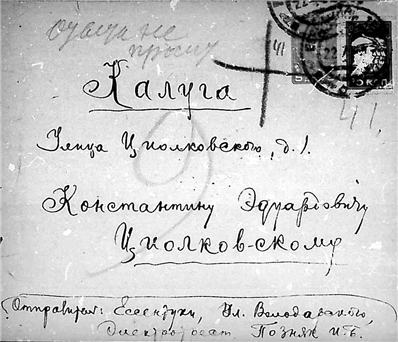 Ответа не
просит
41
Калуга
41.
Улица Циолковского, д. 1.
Константину Эдуардовичу
Циолковскому
Отправитель: Ессентуки, Ул. Володарского,
Электротрест Позняк И.Б.